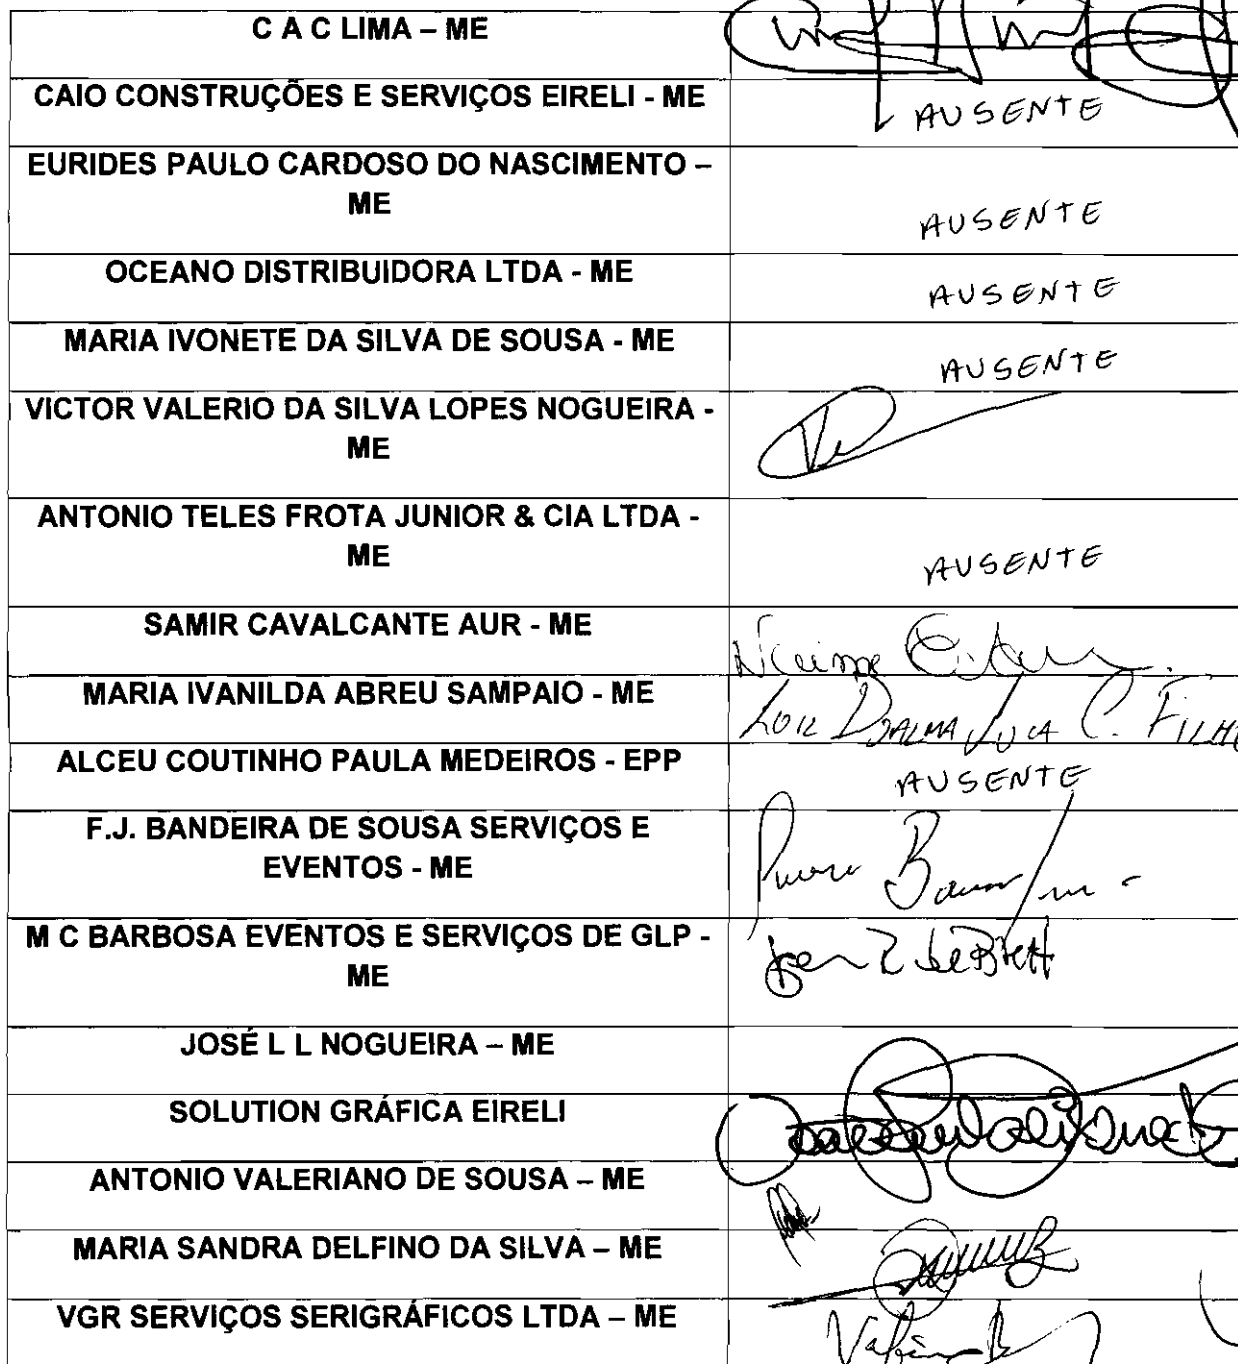 C A C LIMA – ME
CAIO CONSTRUÇÕES E SERVIÇOS EIRELI - ME
AUSENTE
EURIDES PAULO CARDOSO DO NASCIMENTO –
ME
AUSENTE
OCEANO DISTRIBUIDORA LTDA - ME
AUSENTE
MARIA IVONETE DA SILVA DE SOUSA - ME
AUSENTE
VICTOR VALERIO DA SILVA LOPES NOGUEIRA -
ME
ANTONIO TELES FROTA JUNIOR & CIA LTDA -
ME
AUSENTE
SAMIR CAVALCANTE AUR - ME
MARIA IVANILDA ABREU SAMPAIO - ME
DJALMA C. FILHO
ALCEU COUTINHO PAULA MEDEIROS - EPP
AUSENTE
F.J. BANDEIRA DE SOUSA SERVIÇOS E
EVENTOS - ME
M C BARBOSA EVENTOS E SERVIÇOS DE GLP -
ME
JOSÉ L L NOGUEIRA – ME
SOLUTION GRÁFICA EIRELI
ANTONIO VALERIANO DE SOUSA – ME
MARIA SANDRA DELFINO DA SILVA – ME
VGR SERVIÇOS SERIGRÁFICOS LTDA – ME